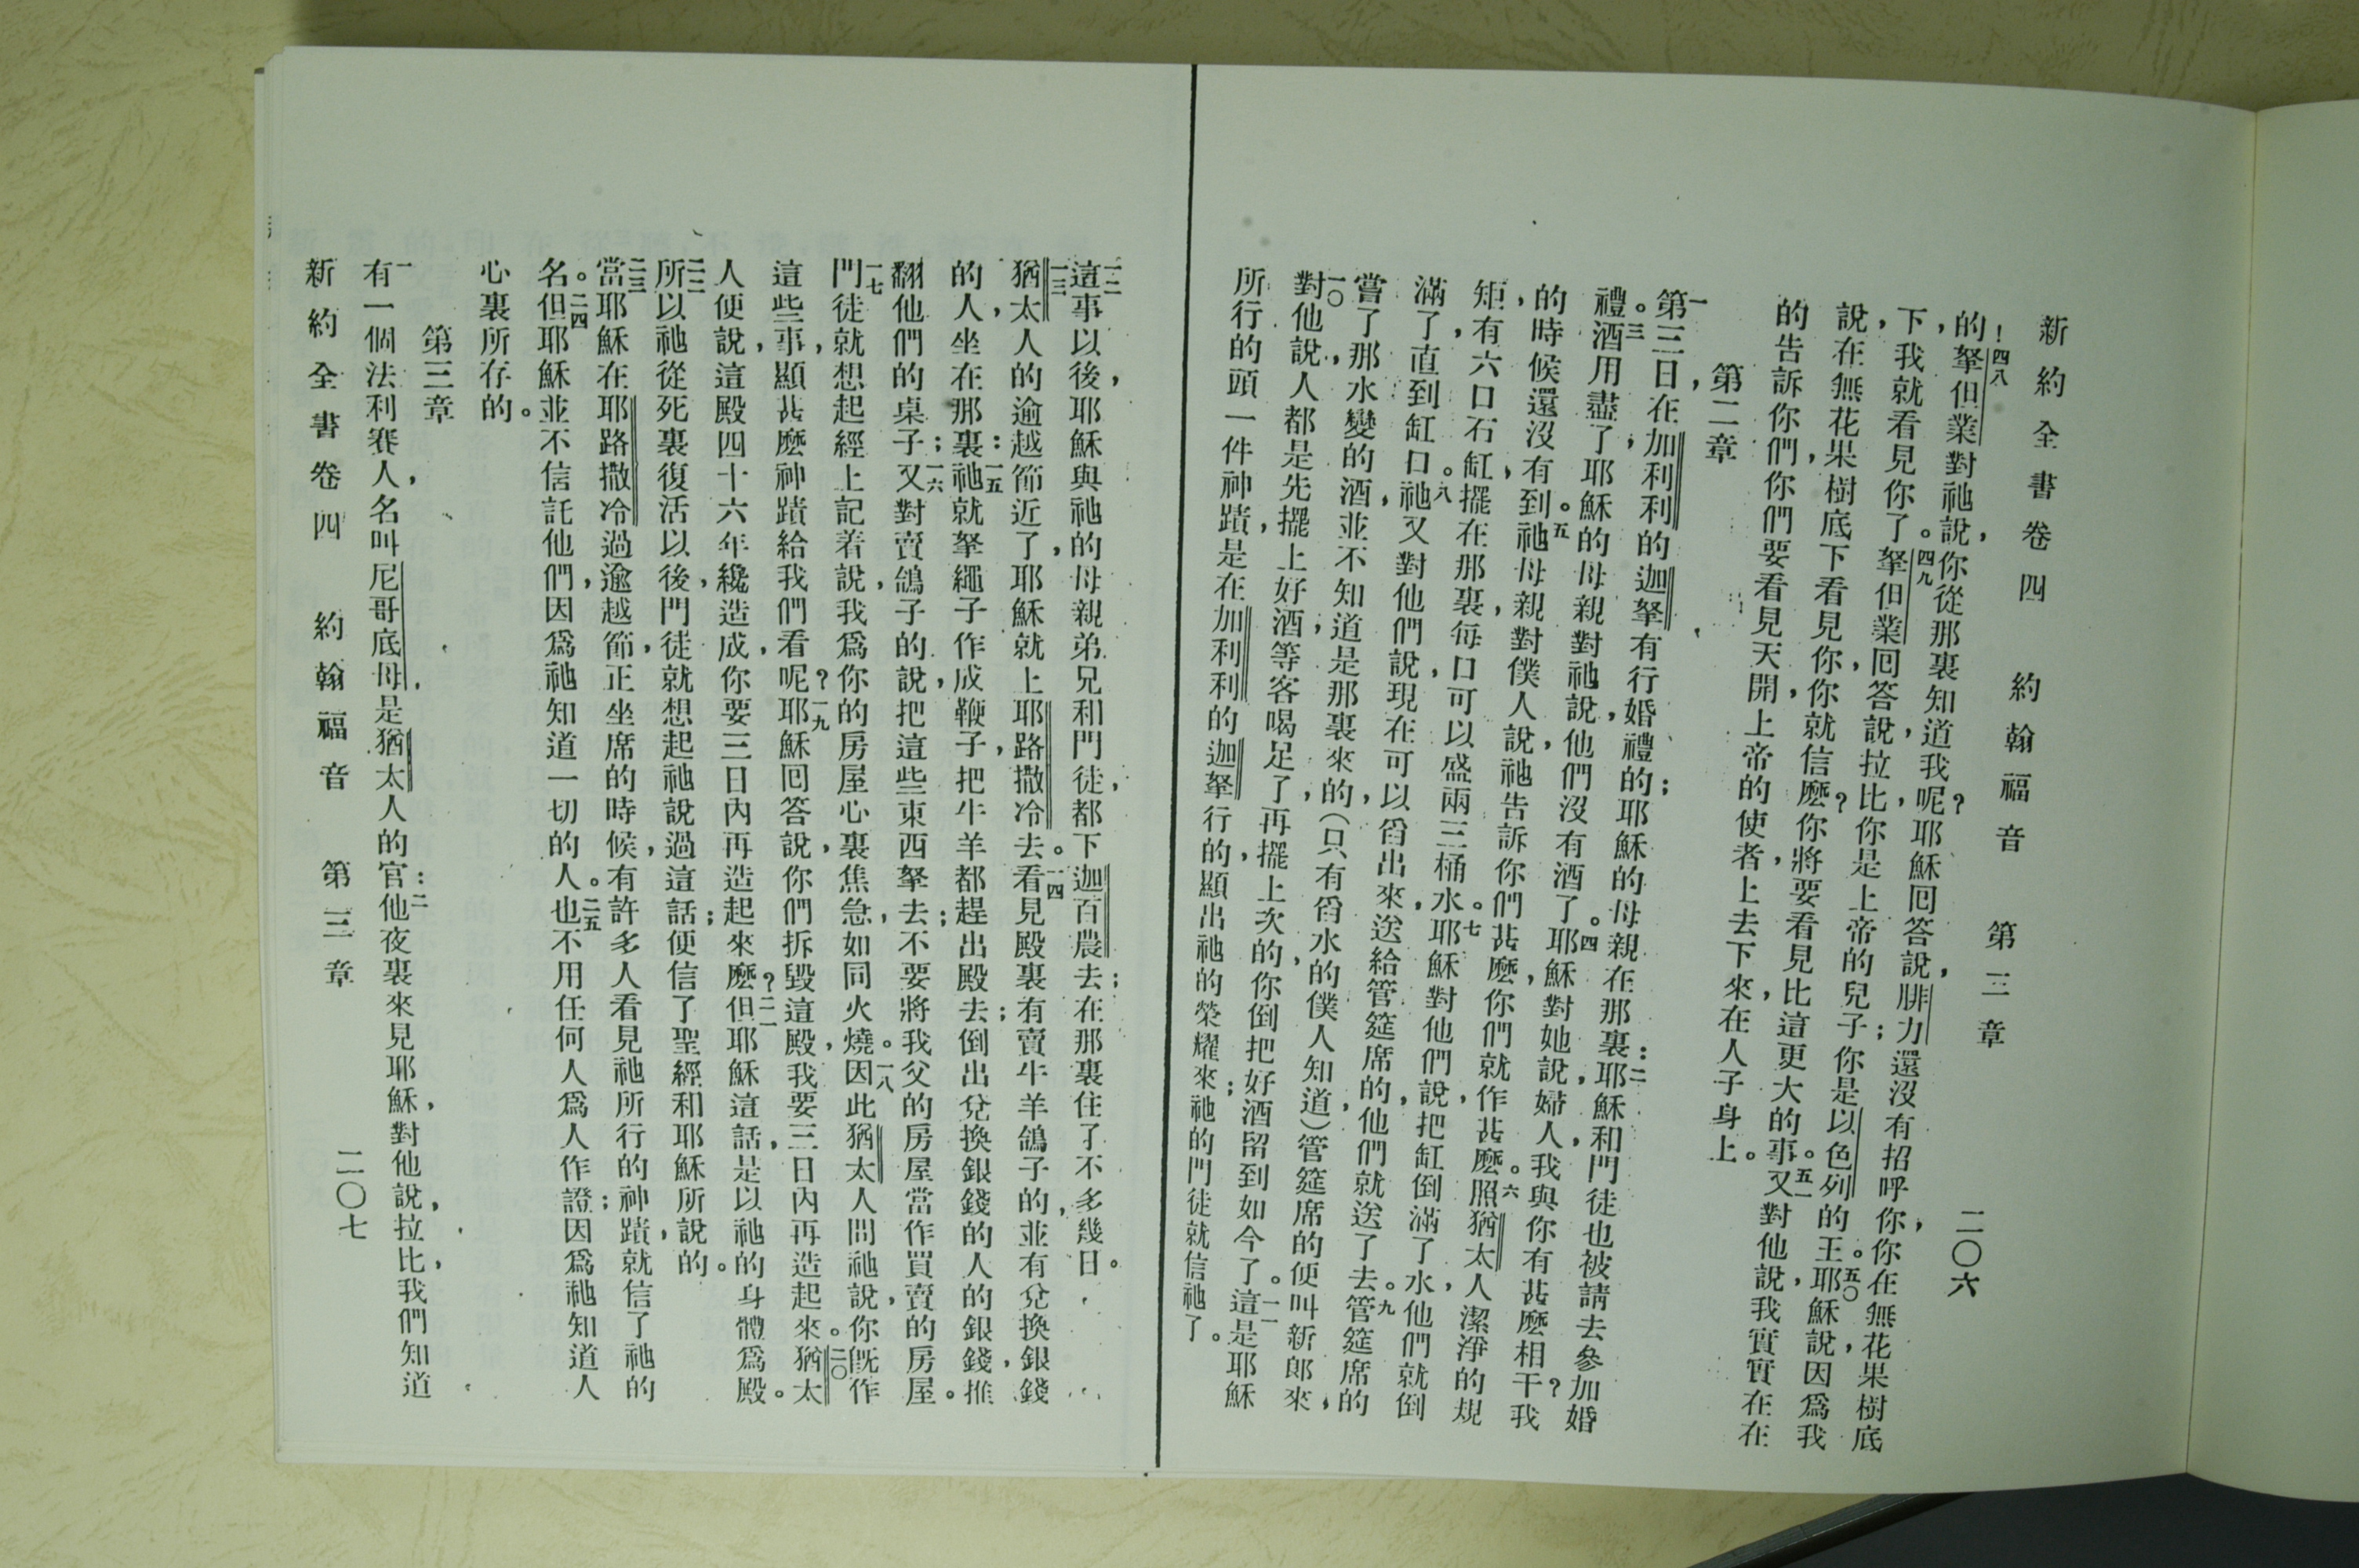 新約全書卷四 約翰福音 第二章 二〇六
的!四八拏但業對祂說,你從那裏知道我呢?耶穌囘答說,腓力還沒有招呼你,你在無花果樹底
下,我就看見你了。四九拏但業囘答說,拉比,你是上帝的兒子;你是以色列的王。五〇耶穌說,因爲我
說,在無花果樹底下看見你,你就信麼?你將要看見比這更大的事。五一又對他說,我實實在在
的告訴你們,你們要看見天開,上帝的使者,上去下來,在人子身上。
第二章
一第三日,在加利利的迦拏有行婚禮的;耶穌的母親在那裏:二耶穌和門徒也被請去參加婚
禮。三酒用盡了,耶穌的母親對祂說,他們沒有酒了。四耶穌對她說,婦人,我與你有甚麼相干?我
的時候還沒有到。五祂母親對僕人說,祂告訴你們甚麼,你們就作甚麼。六照猶太人潔淨的規
矩,有六口石缸,擺在那裏,每口可以盛兩三桶水。七耶穌對他們說,把缸倒滿了水,他們就倒
滿了,直到缸口。八祂又對他們說,現在可以舀出來,送給管筵席的,他們就送了去。九管筵席的
嘗了那水變的酒,並不知道是那裏來的,(只有舀水的僕人知道,)管筵席的便叫新郎來,
一〇對他說,人都是先擺上好酒,等客喝足了,再擺上次的,你倒把好酒留到如今了。一一這是耶穌
所行的頭一件神蹟,是在加利利的迦拏行的,顯出祂的榮耀來;祂的門徒就信祂了。
一二這事以後,耶穌與祂的母親弟兄和門徒,都下迦百農去;在那裏住了不多幾日。
一三猶太人的逾越節近了,耶穌就上耶路撒冷去。一四看見殿裏有賣牛羊鴿子的,並有兌換銀錢
的人,坐在那裏:一五祂就拏繩子作成鞭子,把牛羊都趕出殿去;倒出兌換銀錢的人的銀錢,推
翻他們的桌子;一六又對賣鴿子的說,把這些東西拏去,不要將我父的房屋當作買賣的房屋。
一七門徒就想起經上記着說,我爲你的房屋心裏焦急,如同火燒。一八因此猶太人問祂說,你旣作
這些事,顯甚麼神蹟給我們看呢?一九耶穌囘答說,你們拆毀這殿,我要三日內再造起來。二〇猶太
人便說,這殿四十六年纔造成,你要三日內再造起來麼?二一但耶穌這話,是以祂的身體爲殿。
二二所以祂從死裏復活以後,門徒就想起祂說過這話;便信了聖經和耶穌所說的。
二三當耶穌在耶路撒冷過逾越節,正坐席的時候,有許多人看見祂所行的神蹟,就信了祂的
名。二四但耶穌並不信託他們,因爲祂知道一切的人。二五也不用任何人爲人作證;因爲祂知道人
心裏所存的。
第三章
一有一個法利賽人,名叫尼哥底母,是猶太人的官:二他夜裏來見耶穌,對他說,拉比,我們知道
新約全書卷四 約翰福音 第三章 二〇七